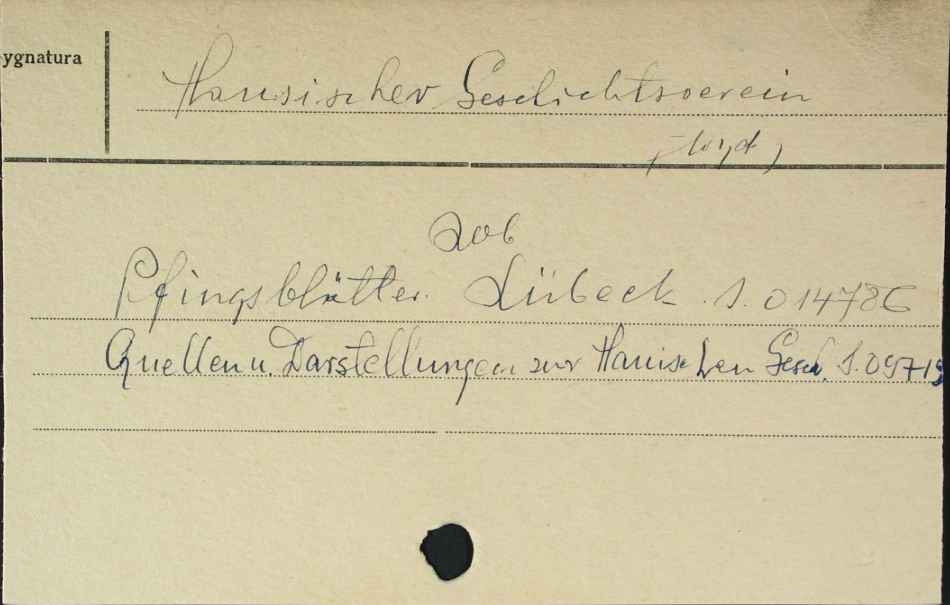 ygnatura
Hansischer Geschichtsverein
(wyd.)
zob
Pfingsblätter. Lübeck. S. 014786
Quellen u. Darstellungen zur Hanischen Gesch. S. 09719